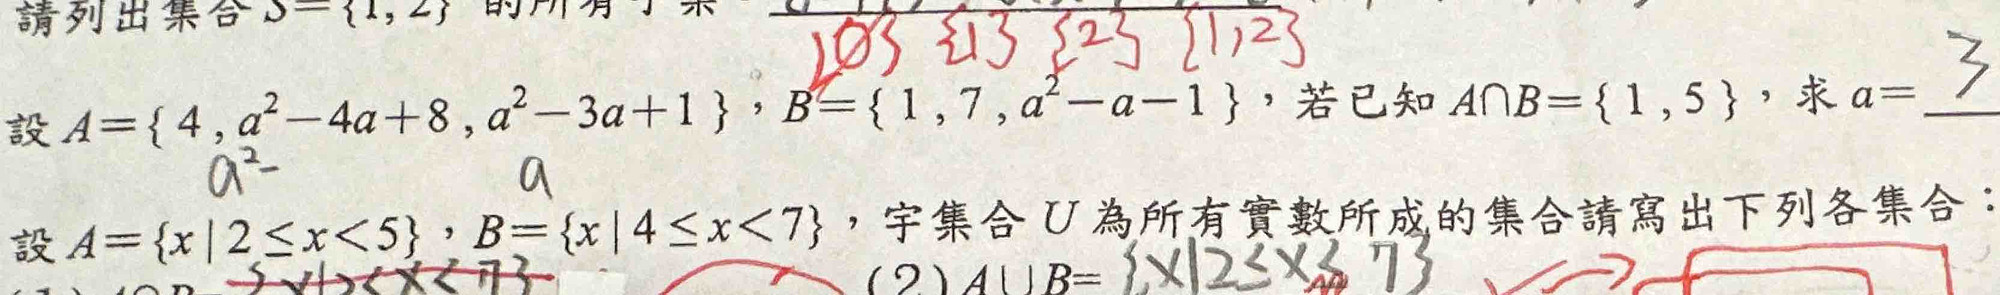 請列出集合 S={1, 2} 的所有子集。
{∅} {1} {2} {1,2}
設 A={ 4 , a²-4a+8 , a²-3a+1 },B={ 1 , 7 , a²-a-1 },若已知 A∩B={ 1 , 5 },求 a= 3
a²- a
設 A={x | 2≤x<5},B={x | 4≤x<7},宇集合 U 為所有實數所成的集合請寫出下列各集合:
A∩B= (2) A∪B= {x|2≤x≤7}